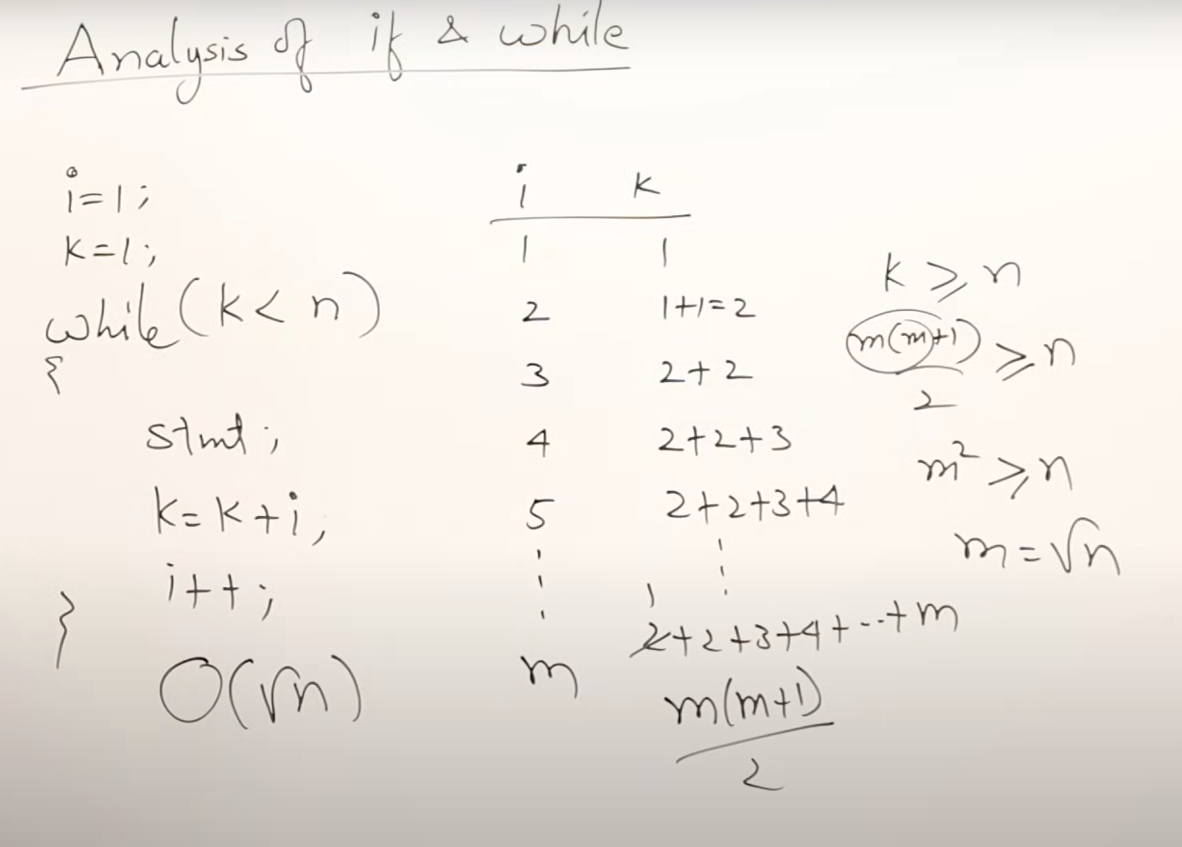 Analysis of if & while
i=1;
k=1;
while(k<n)
{
stmt;
k=k+i,
i++;
}
O(√n)
i k
1 1
2 1+1=2
3 2+2
4 2+2+3
5 2+2+3+4
⋮ ⋮
1
m 2+2+3+4+--+m
m(m+1)
2
k ≥ n
m(m+1) ≥ n
2
m² ≥ n
m=√n